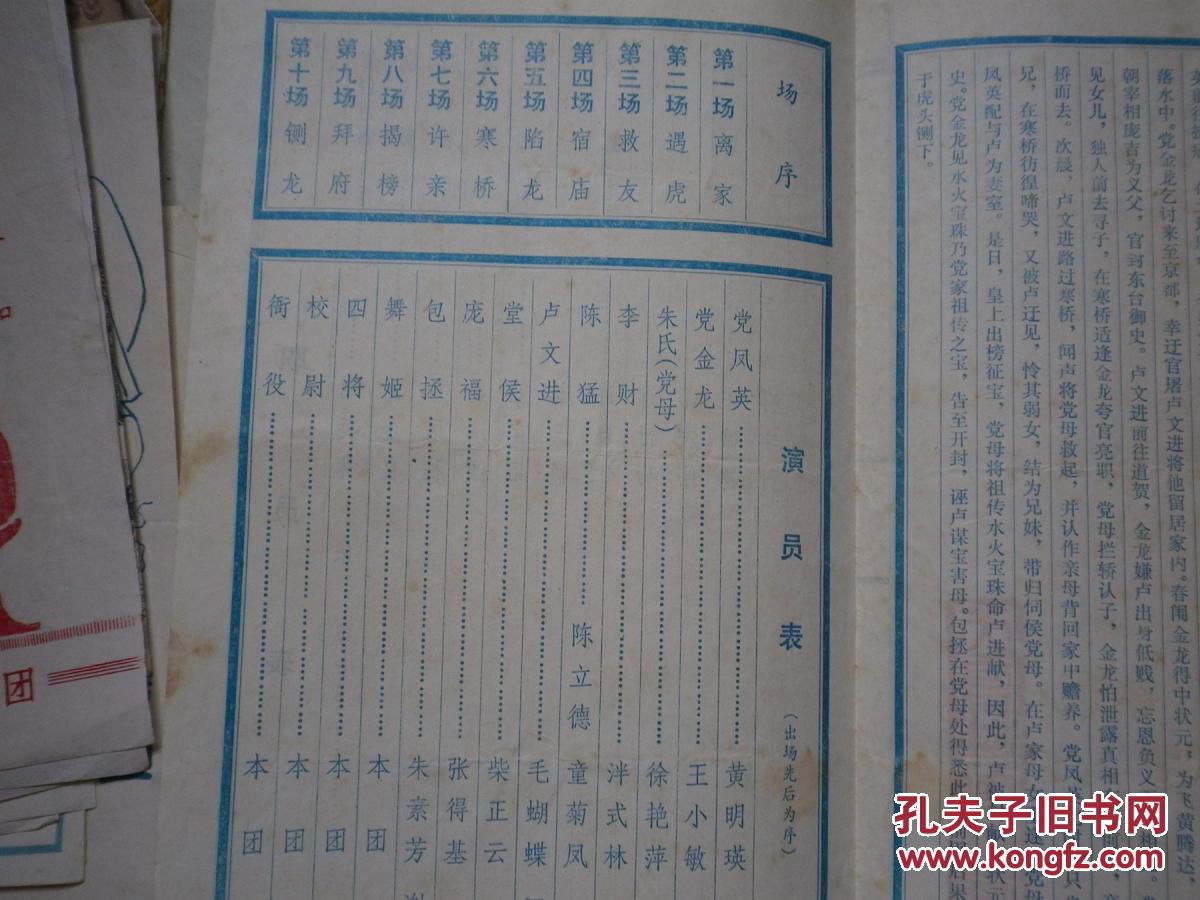 落水中。党金龙乞讨来至京都，幸迂官屠卢文进将他留居家内。春闱金龙得中状元，为飞黄腾达，
朝宰相庞吉为义父，官封东台御史。卢文进前往道贺，金龙嫌卢出身低贱，忘恩负义
见女儿，独人前去寻子，在寒桥适逢金龙夸官亮职，党母拦轿认子，金龙怕泄露真相
桥而去。次晨，卢文进路过寒桥，闻声将党母救起，并认作亲母背回家中赡养。党凤英
兄，在寒桥彷徨啼哭，又被卢迂见，怜其弱女，结为兄妹，带归伺侯党母。在卢家母女
凤英配与卢为妻室。是日，皇上出榜征宝，党母将祖传水火宝珠命卢进献，因此，卢被
史。党金龙见水火宝珠乃党家祖传之宝，告至开封，诬卢谋宝害母。包拯在党母处得悉此
于虎头铡下。
场序
第一场 离家
第二场 遇虎
第三场 救友
第四场 宿庙
第五场 陷龙
第六场 寒桥
第七场 许亲
第八场 揭榜
第九场 拜府
第十场 铡龙
演员表（出场先后为序）
党凤英……黄明瑛
党金龙……王小敏
朱氏（党母）……徐艳萍
李财……泮式林
陈猛……陈立德 童菊凤
卢文进……毛蝴蝶
堂侯……柴正云
庞福……张得基
包拯……朱素芳
舞姬……本团
四将……本团
校尉……本团
衙役……本团
团
孔夫子旧书网
www.kongfz.com